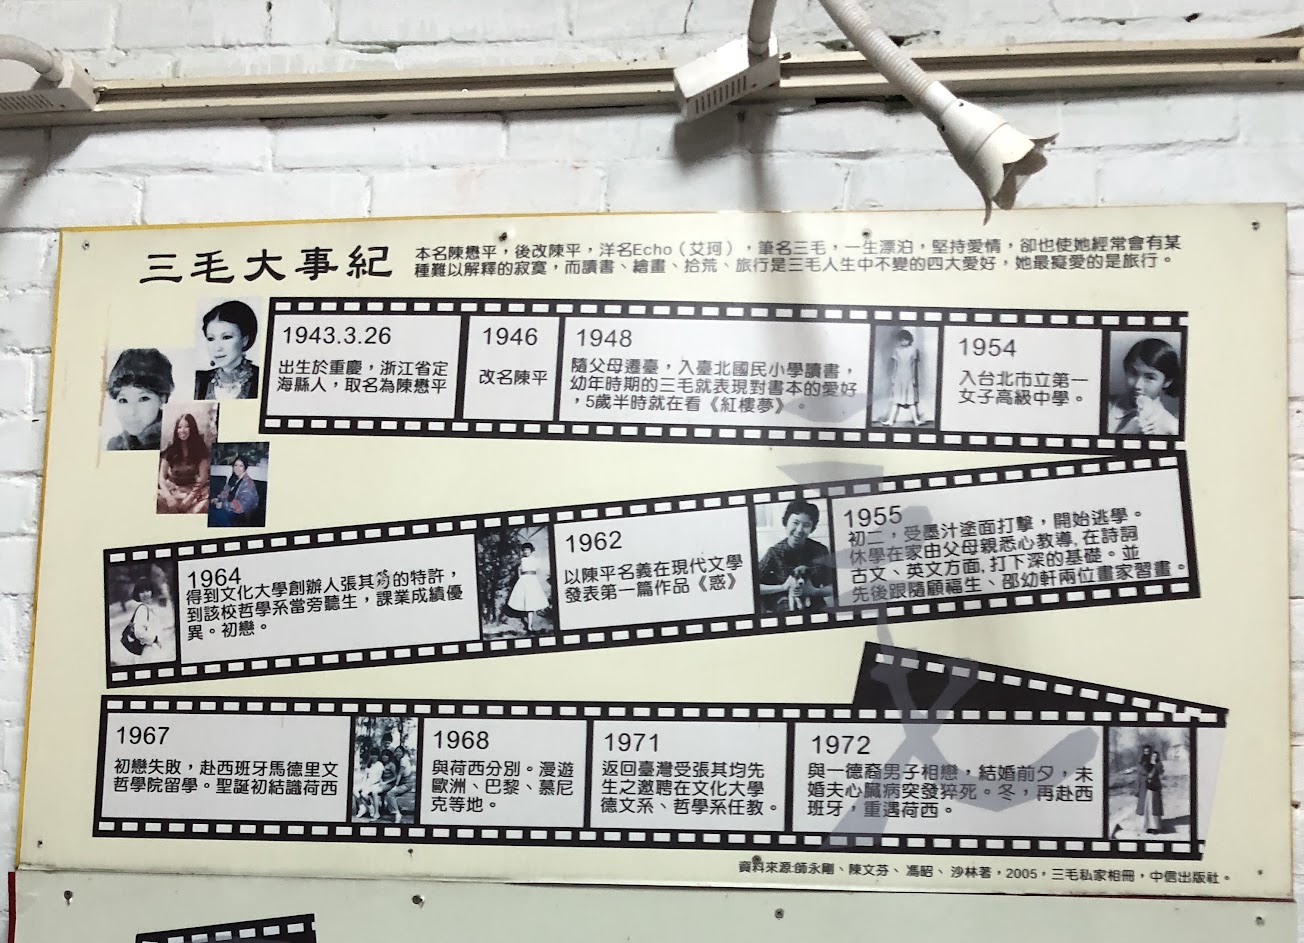 三毛大事紀
本名陳懋平，後改陳平，洋名Echo（艾珂），筆名三毛，一生漂泊，堅持愛情，卻也使她經常會有某
種難以解釋的寂寞，而讀書、繪畫、拾荒、旅行是三毛人生中不變的四大愛好，她最癡愛的是旅行。
1943.3.26
出生於重慶，浙江省定
海縣人，取名為陳懋平
1946
改名陳平
1948
隨父母遷臺，入臺北國民小學讀書，
幼年時期的三毛就表現對書本的愛好
，5歲半時就在看《紅樓夢》。
1954
入台北市立第一
女子高級中學。
1955
初二，受墨汁塗面打擊，開始逃學。
休學在家由父母親悉心教導，在詩詞
古文、英文方面，打下深的基礎。並
先後跟隨顧福生、邵幼軒兩位畫家習畫。
1962
以陳平名義在現代文學
發表第一篇作品《惑》
1964
得到文化大學創辦人張其筠的特許，
到該校哲學系當旁聽生，課業成績優
異。初戀。
1967
初戀失敗，赴西班牙馬德里文
哲學院留學。聖誕初結識荷西
1968
與荷西分別。漫遊
歐洲、巴黎、慕尼
克等地。
1971
返回臺灣受張其均先
生之邀聘在文化大學
德文系、哲學系任教。
1972
與一德裔男子相戀，結婚前夕，未
婚夫心臟病突發猝死。冬，再赴西
班牙，重遇荷西。
資料來源:師永剛、陳文芬、馮昭、沙林著，2005，三毛私家相冊，中信出版社。